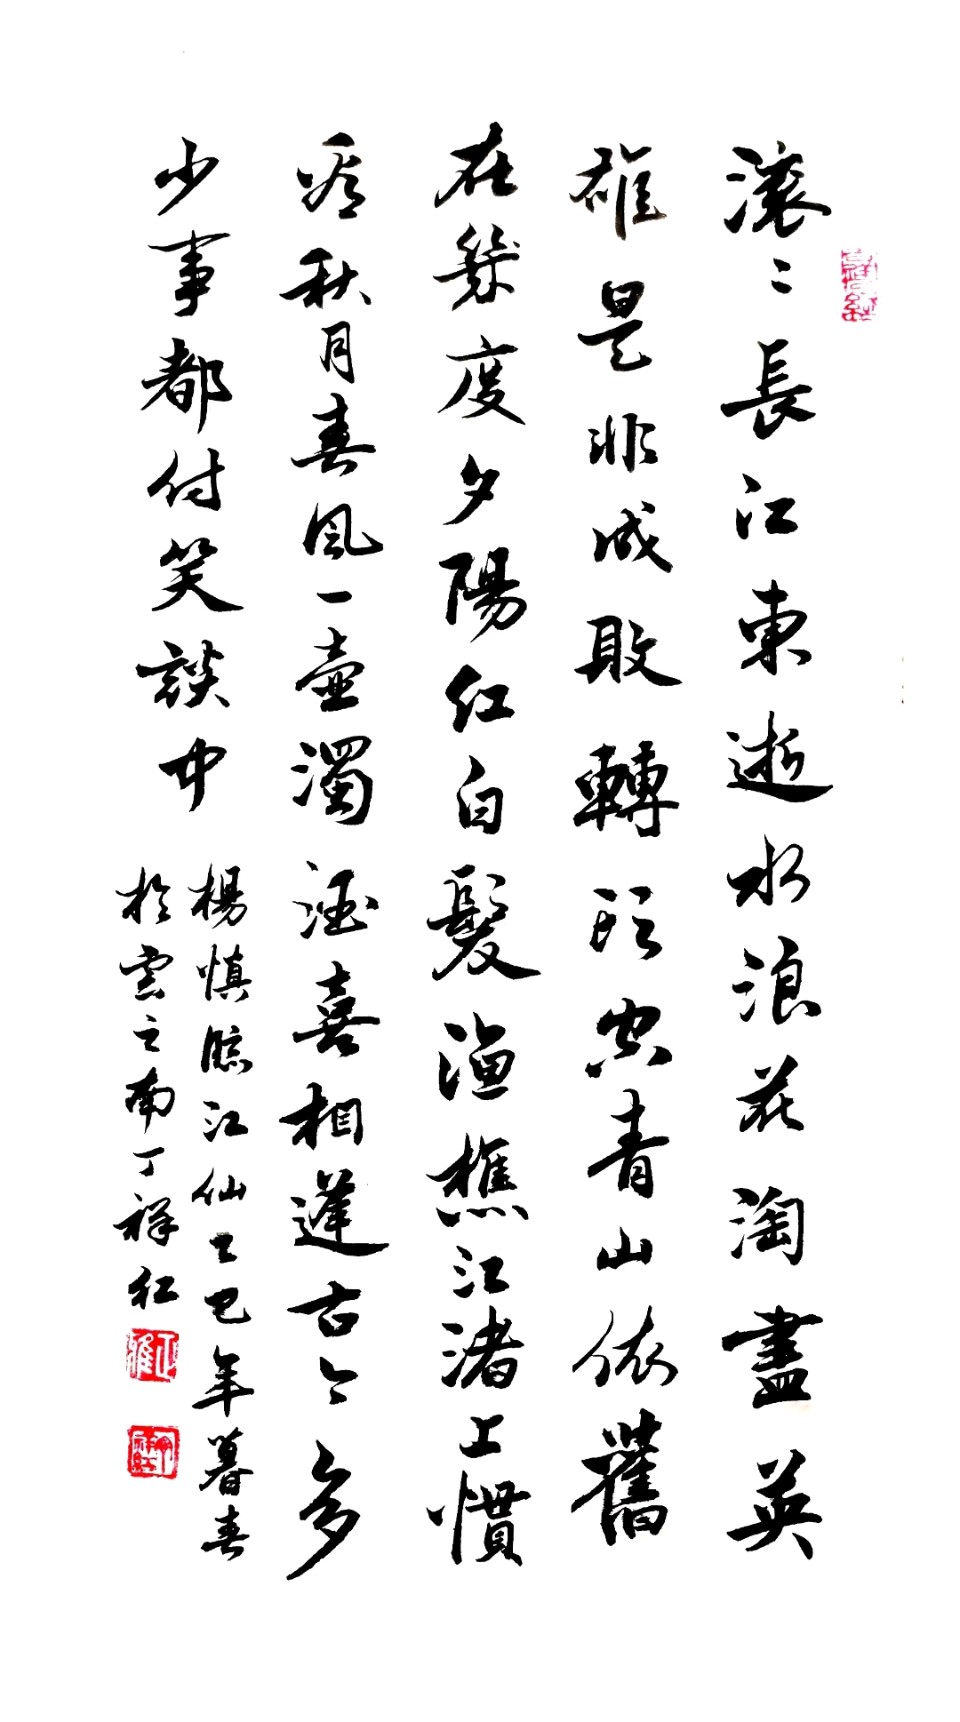 滚〻長江東逝水浪花淘盡英
雄是非成敗轉頭空青山依舊
在幾度夕陽紅白髮漁樵江渚上慣
看秋月春風一壺濁酒喜相逢古今多
少事都付笑談中
楊慎臨江仙乙巳年暮春
於雲之南丁祥紅